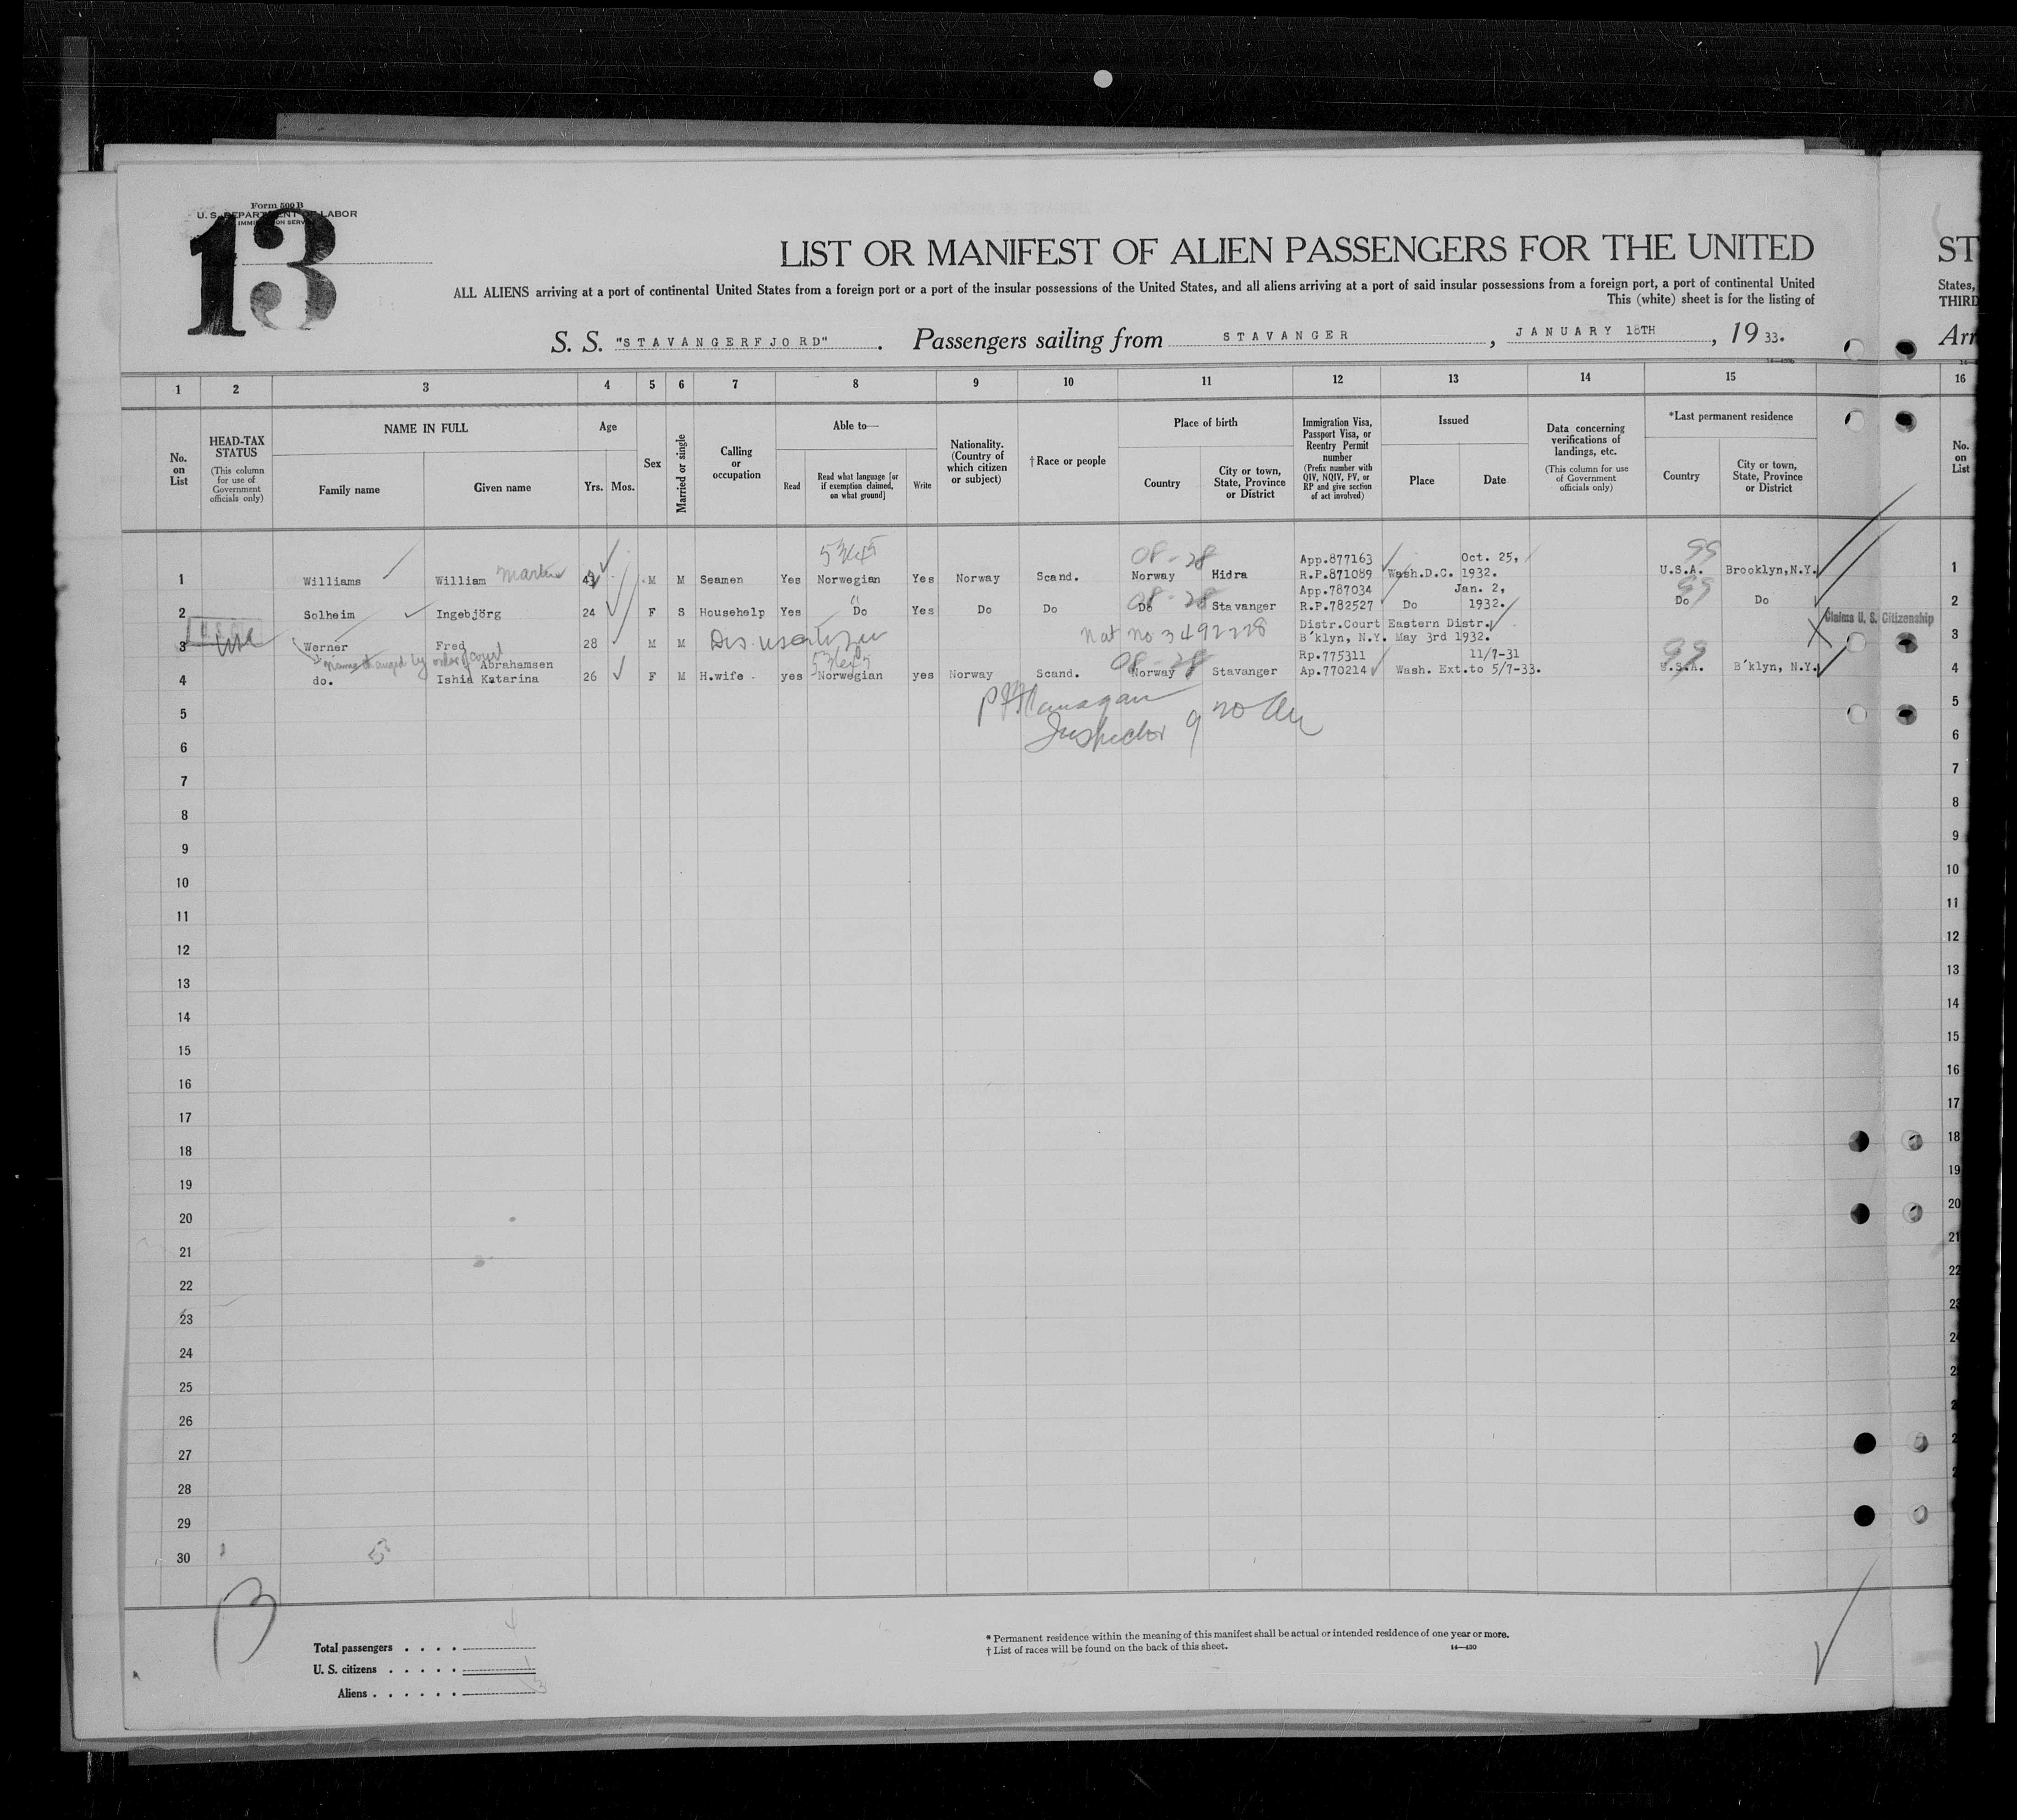 Form 500 B
U. S. DEPARTMENT OF LABOR
IMMIGRATION SERVICE
13
LIST OR MANIFEST OF ALIEN PASSENGERS FOR THE UNITED
ST
ALL ALIENS arriving at a port of continental United States from a foreign port or a port of the insular possessions of the United States, and all aliens arriving at a port of said insular possessions from a foreign port, a port of continental United
States,
This (white) sheet is for the listing of
THIRD
S. S. "STAVANGERFJORD". Passengers sailing from STAVANGER, JANUARY 18TH, 19 33.
Arr
1 2 3 4 5 6 7 8 9 10 11 12 13 14 15 16
No. on List
HEAD-TAX STATUS
(This column for use of Government officials only)
NAME IN FULL
Family name
Given name
Age
Yrs. Mos.
Sex
Married or single
Calling or occupation
Able to—
Read
Read what language [or if exemption claimed, on what ground]
Write
Nationality. (Country of which citizen or subject)
† Race or people
Place of birth
Country
City or town, State, Province or District
Immigration Visa, Passport Visa, or Reentry Permit number
(Prefix number with QIV, NQIV, PV, or RP and give section of act involved)
Issued
Place
Date
Data concerning verifications of landings, etc.
(This column for use of Government officials only)
*Last permanent residence
Country
City or town, State, Province or District
No. on List
5345 08-28 App.877163 Oct. 25, 99
1 Williams William Martin 43 M M Seamen Yes Norwegian Yes Norway Scand. Norway Hidra R.P.871089 Wash.D.C. 1932. U.S.A. Brooklyn,N.Y. 1
" 08-28 App.787034 Jan. 2, 99
2 Solheim Ingebjörg 24 F S Househelp Yes Do Yes Do Do Do Stavanger R.P.782527 Do 1932. Do Do 2
Claims U. S. Citizenship
USA Nat no 3492228 Distr.Court Eastern Distr.
3 Werner Fred 28 M M B'klyn, N.Y. May 3rd 1932. 3
name changed by order of court Abrahamsen 08-28 Rp.775311 11/7-31 99
4 do. Ishid Katarina 26 F M H.wife - yes Norwegian yes Norway Scand. Norway Stavanger Ap.770214 Wash. Ext.to 5/7-33. U.S.A. B'klyn, N.Y. 4
P Flanagan
5 5
Inspector 9
6 6
7 7
8 8
9 9
10 10
11 11
12 12
13 13
14 14
15 15
16 16
17 17
18 18
19 19
20 20
21 21
22 22
23 23
24 24
25
26
27
28
29
30
13
Total passengers . . . . 4
U. S. citizens . . . . . 1
Aliens . . . . . . 3
* Permanent residence within the meaning of this manifest shall be actual or intended residence of one year or more.
† List of races will be found on the back of this sheet.
14—430